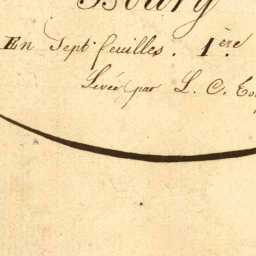 Bourg
En Sept feuilles. 1ère
Levée par L. C.